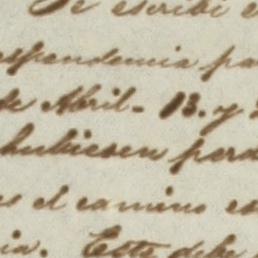 Te escribí e
espondencia pa
de Abril - 13. y
hubiesen perd
es el camino es
ia. Esto debe